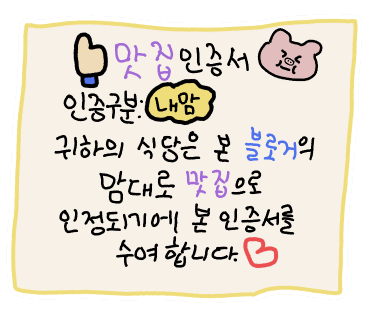 맛집인증서
인증구분: 내맘
귀하의 식당은 본 블로거의
맘대로 맛집으로
인정되기에 본 인증서를
수여합니다.